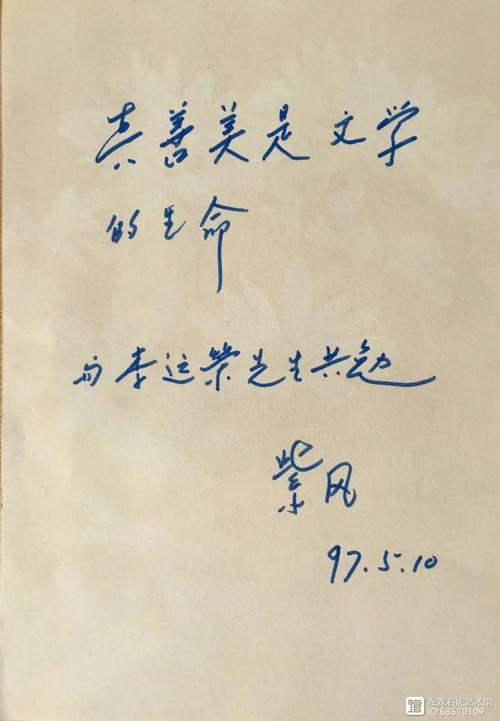 真善美是文学
的生命
与李运荣先生共勉
紫风
97.5.10
左龙右虎艺术馆
ID:68570109